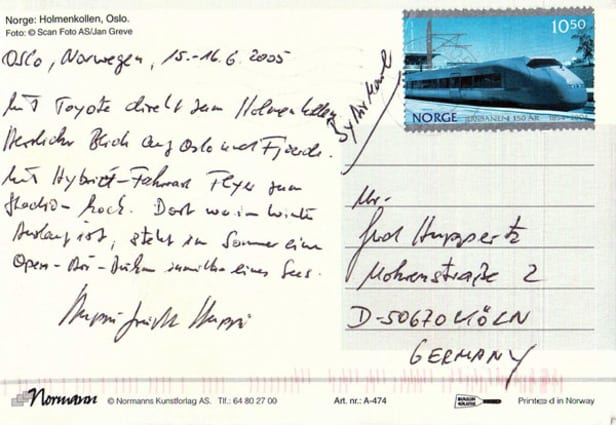 Norge: Holmenkollen, Oslo.
Foto: © Scan Foto AS/Jan Greve
Oslo, Norwegen, 15.-16.6.2005
Mit Toyota direkt zum Holmenkollen
Herrlicher Blick auf Oslo und Fjorde.
Mit Hybrid-Fahrrad Flyer zum
Stadion hoch. Dort wo im Winter
Auslauf ist, steht im Sommer eine
Open-Air-Bühne inmitten eines Sees.
Huppi
By Air Mail
10 50
NORGE JERNBANEN 150 ÅR 1854-2004
Hr.
Huppertz
Mohrenstraße 2
D-50670 KÖLN
GERMANY
Normann © Normanns Kunstforlag AS. Tlf.: 64 80 27 00 Art. nr.: A-474 Printed in Norway